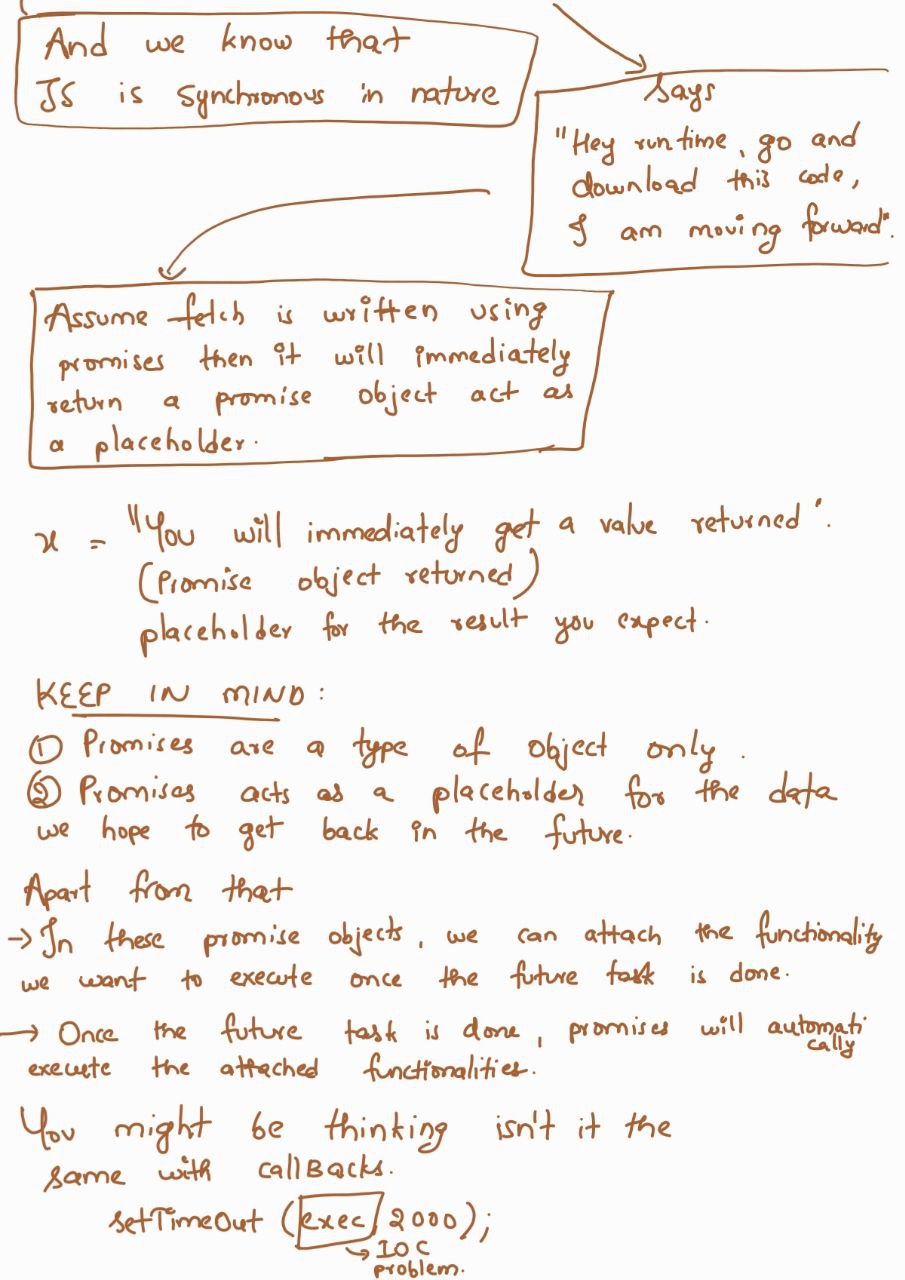 And we know that
JS is synchronous in nature
says
"Hey runtime, go and
download this code,
I am moving forward".
Assume fetch is written using
promises then it will immediately
return a promise object act as
a placeholder.
x = "You will immediately get a value returned".
(Promise object returned)
placeholder for the result you expect.
KEEP IN MIND:
① Promises are a type of object only.
② Promises acts as a placeholder for the data
we hope to get back in the future.
Apart from that
→ In these promise objects, we can attach the functionality
we want to execute once the future task is done.
→ Once the future task is done, promises will automati
cally
execute the attached functionalities.
You might be thinking isn't it the
same with callBacks.
setTimeOut (exec, 2000);
→ IOC
problem.